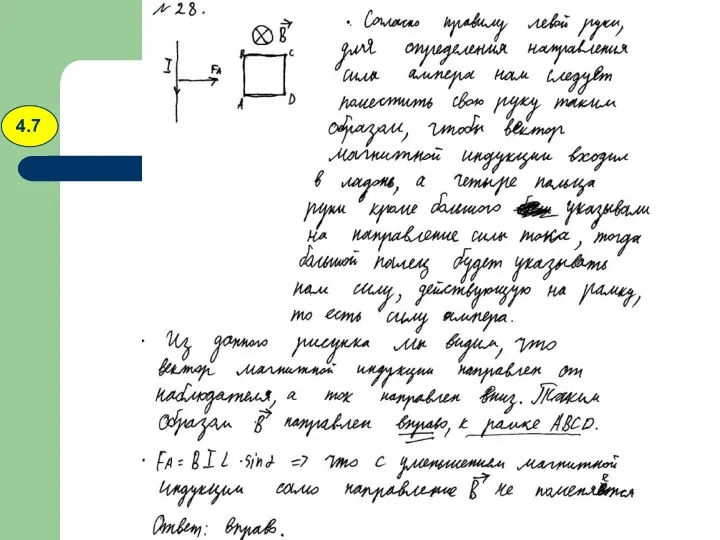 №28.
B⃗
I
FA
B
C
A
D
4.7
• Согласно правилу левой руки,
для определения направления
силы ампера нам следует
поместить свою руку таким
образом, чтобы вектор
магнитной индукции входил
в ладонь, а четыре пальца
руки кроме большого указывали
на направление силы тока, тогда
большой палец будет указывать
нам силу, действующую на рамку,
то есть силу ампера.
• Из данного рисунка мы видим, что
вектор магнитной индукции направлен от
наблюдателя, а ток направлен вниз. Таким
образом B⃗ направлен вправо, к рамке ABCD.
• FA = B I L · sinα => что с уменьшением магнитной
индукции само направление B⃗ не поменяется
Ответ: вправо.